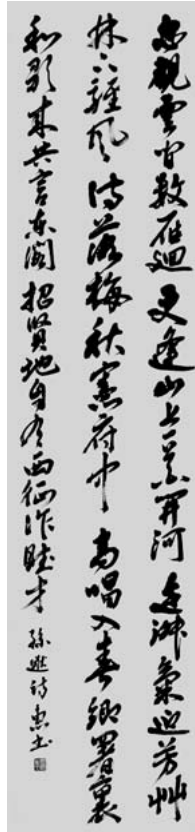 忽覩雲間數雁迴更逢山上一花開河邊淑氣迎芳艸
林下輕風待落梅秋憲府中高唱入春卿署裏
和歌來共言東閣招賢地自有西征作賦才 孫逖詩